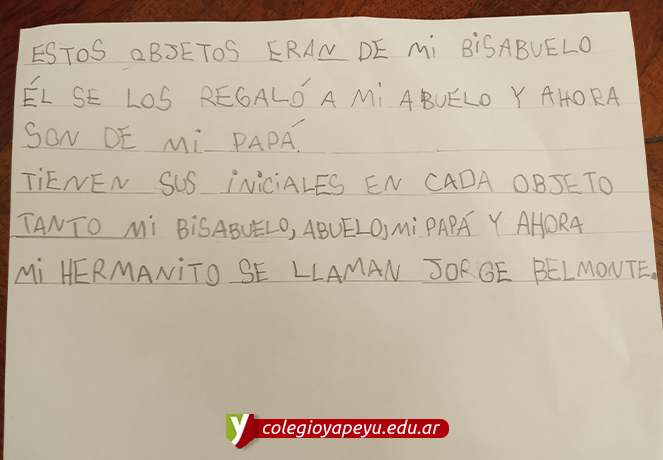 ESTOS OBJETOS ERAN DE Mi BiSABUELO
ÉL SE LOS REGALÓ A Mi ABUELO Y AHORA
SON DE Mi PAPÁ.
TiENEN SUS iNiCiALES EN CADA OBJETO
TANTO Mi BiSABUELO, ABUELO, Mi PAPÁ Y AHORA
Mi HERMANiTO SE LLAMAN JORGE BELMONTE.
y colegioyapeyu.edu.ar